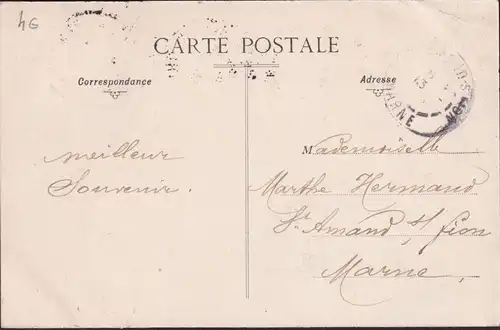 4G
CARTE POSTALE
Correspondance
Adresse
MARNE
meilleur
Souvenir.
Mademoiselle
Marthe Hermand
St Amand s/ fion
Marne.